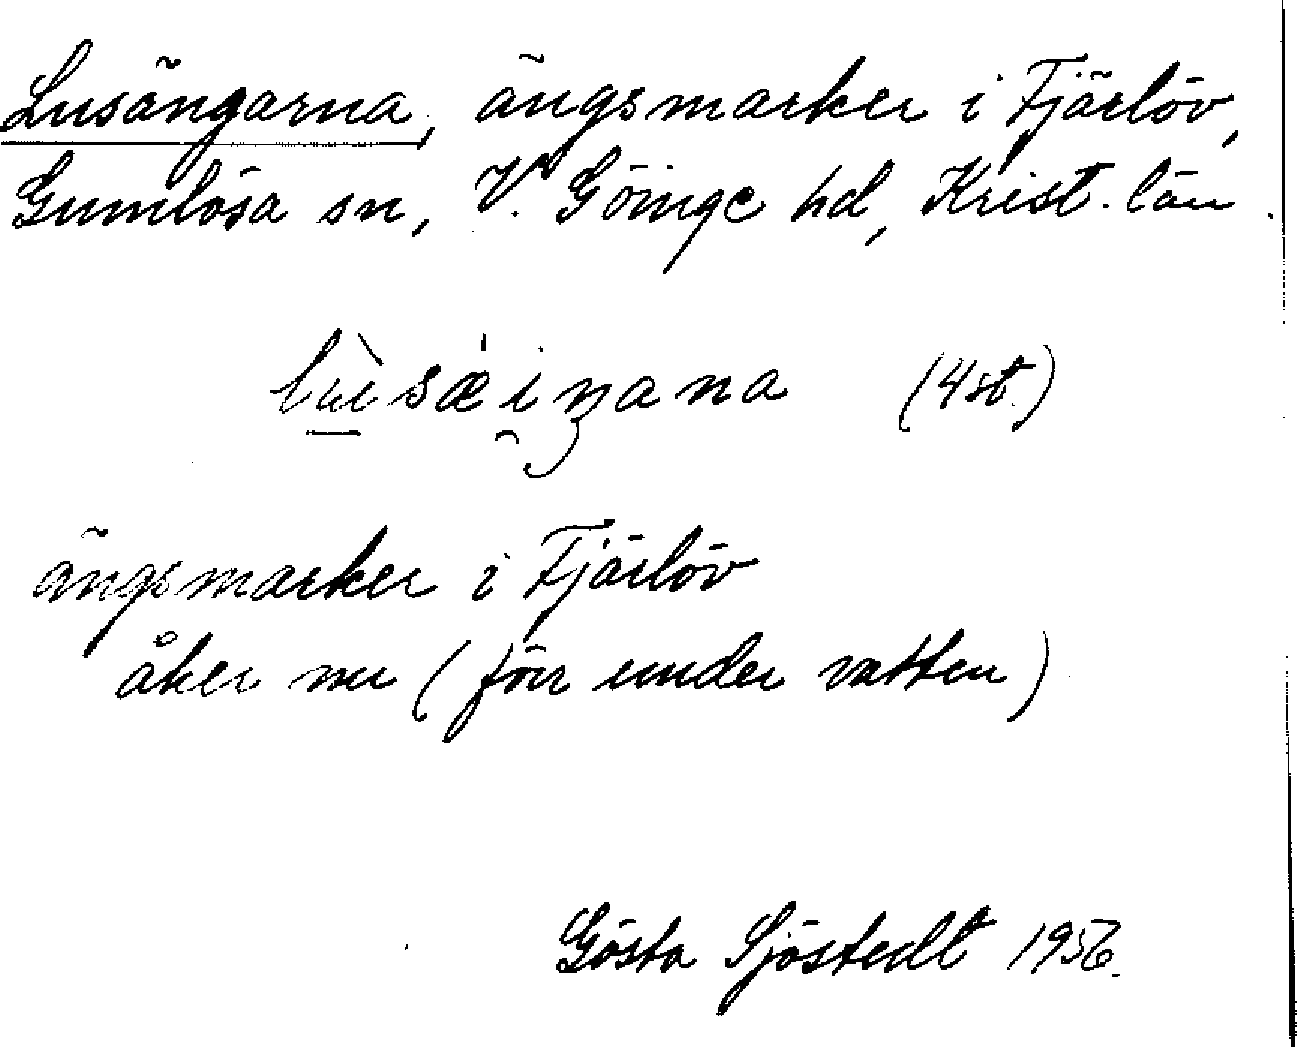 Lusängarna, ängsmarker i Fjärlöv,
Gumlösa sn, V. Göinge hd, Krist. län.
(4 st.)
ängsmarker i Fjärlöv
åker nu (förr under vatten)
Gösta Sjöstedt 1956.